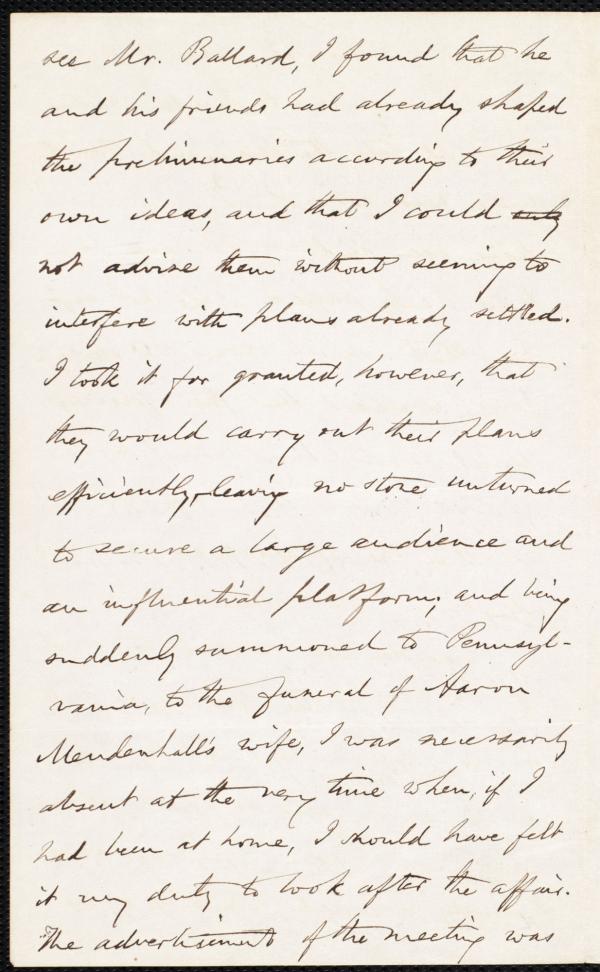 see Mr. Ballard, I found that he
and his friends had already shaped
the preliminaries according to their
own ideas, and that I could only
not advise them without seeming to
interfere with plans already settled.
I took it for granted, however, that
they would carry out their plans
efficiently, leaving no stone unturned
to secure a large audience and
an influential platform; and being
suddenly summoned to Pennsyl-
vania, to the funeral of Aaron
Mendenhall's wife, I was necessarily
absent at the very time when, if I
had been at home, I should have felt
it my duty to look after the affair.
The advertisement of the meeting was